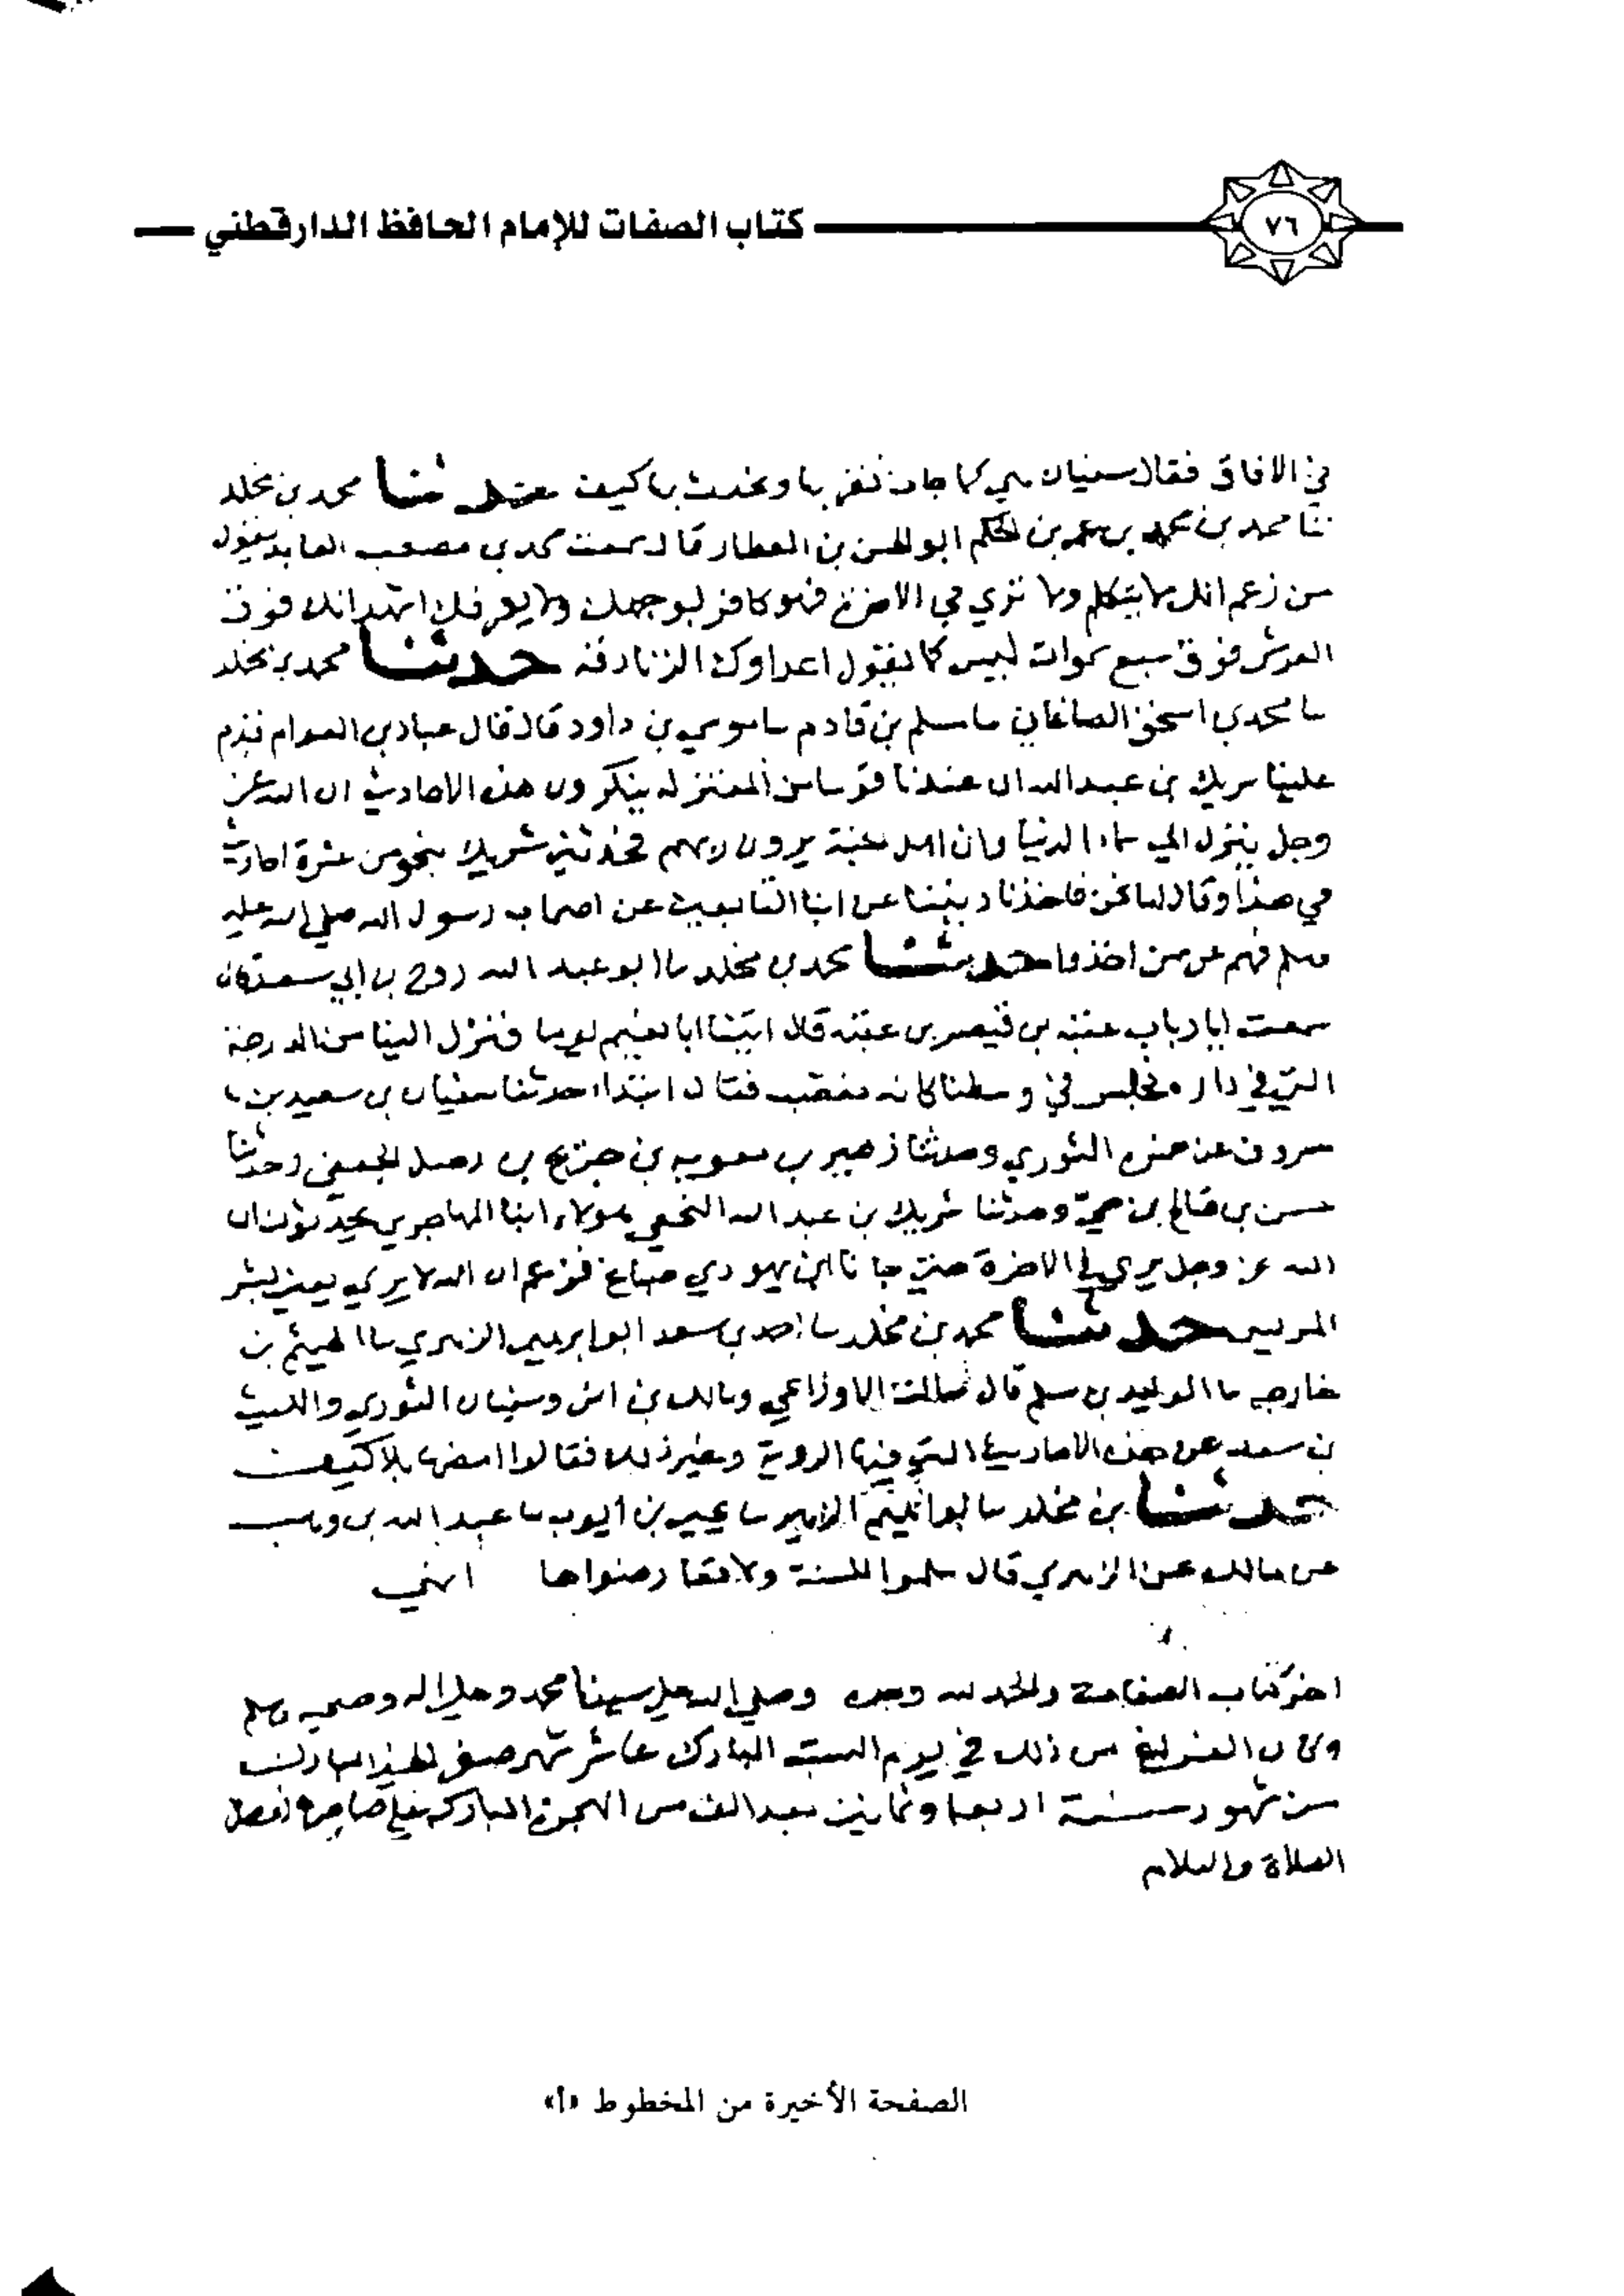 ٧٦
كتاب الصفات للإمام الحافظ الدارقطني
في الافاق فقال سفيان هي كما جات نقر بها ونحدث بلا كيف حدثنا محمد بن مخلد
ثنا محمد بن محمد بن عمر بن الحكم ابو الحسن بن العطار قال سمعت محمد بن مصعب العابد يقول
من زعم انك لا تتكلم ولا ترى في الاخرة فهو كافر بوجهك ولا يعرفك اشهد انك فوق
العرش فوق سبع سموات ليس كما يقول اعداوك الزنادقه حدثنا محمد بن مخلد
سا محمد بن اسحق الصاغاني سا سلم بن قادم سا موسي بن داود قال قال عباد بن العوام قدم
علينا شريك بن عبد الله ان عندنا قوما من المعتزله ينكرون هذه الاحاديث ان الله عز
وجل ينزل الي سماء الدنيا وان اهل الجنة يرون ربهم فحدثني شريك بنحو من عشرة احاديث
في هذا وقال اما نحن فاخذنا ديننا عن ابنا التابعين عن اصحاب رسول الله صلي الله عليه
وسلم فهم عن من اخذوا حدثنا محمد بن مخلد سا ابو عبد الله
سمعت ابا رجا قتيبة قال اتينا ابا نعيم يوما فنزل الينا من الدرجة
التي في داره فجلس في وسطنا كانه مغضب فقال ابتداء حدثنا سفيان بن سعيد بن
مسروق الثوري وحدثنا زهير بن معويه بن حديج بن رحيل الجعفي وحدثنا
حسن بن صالح بن حي وحدثنا شريك بن عبد الله النخعي هولاء ابنا المهاجرين يحدثون ان
الله عز وجل يرى في الاخرة حتى جانا ابن يهودي صباغ فزعم ان الله لا يرى يعني بشر
المريسي حدثنا محمد بن مخلد سا احمد بن سعد ابو ابرهيم الزهري سا الهيثم بن
خارجه سا الوليد بن مسلم قال سالت الاوزاعي ومالك بن انس وسفيان الثوري والليث
بن سعد عن هذه الاحاديث التي فيها الروية وغير ذلك فقالوا امضها بلا كيف
حدثنا بن مخلد سا يحيى بن ايوب سا عبد الله بن وهب
عن مالك عن الزهري قال سلموا للسنة ولا تعارضوها انتهي
اخر كتاب الصفات والحمد لله وحده وصلي الله على سيدنا محمد وعلى اله وصحبه وسلم
وكان الفراغ من ذلك في يوم السبت المبارك عاشر شهر صفر
من شهور سنة اربعة وثمانين بعد الالف من الهجرة المباركه على صاحبها افضل
الصلاة والسلام
الصفحة الأخيرة من المخطوط «أ»